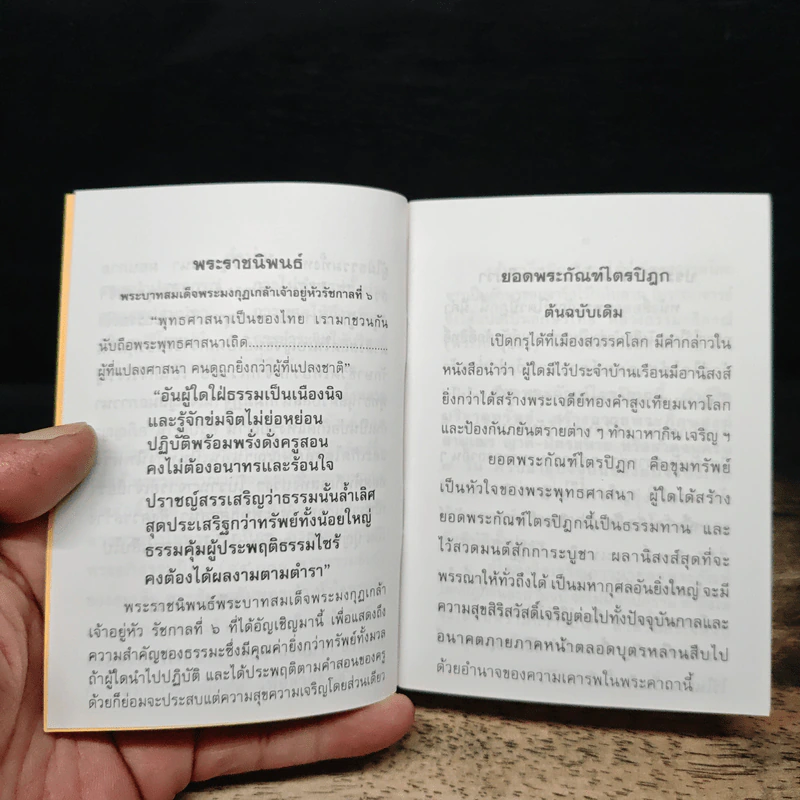 พระราชนิพนธ์
พระบาทสมเด็จพระมงกุฏเกล้าเจ้าอยู่หัวรัชกาลที่ ๖
“พุทธศาสนาเป็นของไทย เรามาชวนกัน
นับถือพระพุทธศาสนาเถิด....................................
ผู้ที่แปลงศาสนา คนดูถูกยิ่งกว่าผู้ที่แปลงชาติ”
“อันผู้ใดใฝ่ธรรมเป็นเนืองนิจ
และรู้จักข่มจิตไม่ย่อหย่อน
ปฏิบัติพร้อมพรั่งดั่งครูสอน
คงไม่ต้องอนาทรและร้อนใจ
ปราชญ์สรรเสริญว่าธรรมนั้นล้ำเลิศ
สุดประเสริฐกว่าทรัพย์ทั้งน้อยใหญ่
ธรรมคุ้มผู้ประพฤติธรรมไซร้
คงต้องได้ผลงามตามตำรา”
พระราชนิพนธ์พระบาทสมเด็จพระมงกุฏเกล้า
เจ้าอยู่หัว รัชกาลที่ ๖ ที่ได้อัญเชิญมานี้ เพื่อแสดงถึง
ความสำคัญของธรรมะซึ่งมีคุณค่ายิ่งกว่าทรัพย์ทั้งมวล
ถ้าผู้ใดนำไปปฏิบัติ และได้ประพฤติตามคำสอนของครู
ด้วยก็ย่อมจะประสบแต่ความสุขความเจริญโดยส่วนเดียว
ยอดพระกัณฑ์ไตรปิฎก
ต้นฉบับเดิม
เปิดกรุได้ที่เมืองสวรรคโลก มีคำกล่าวใน
หนังสือนำว่า ผู้ใดมีไว้ประจำบ้านเรือนมีอานิสงส์
ยิ่งกว่าได้สร้างพระเจดีย์ทองคำสูงเทียมเทวโลก
และป้องกันภยันตรายต่าง ๆ ทำมาหากิน เจริญ ฯ
ยอดพระกัณฑ์ไตรปิฎก คือขุมทรัพย์
เป็นหัวใจของพระพุทธศาสนา ผู้ใดได้สร้าง
ยอดพระกัณฑ์ไตรปิฎกนี้เป็นธรรมทาน และ
ไว้สวดมนต์สักการะบูชา ผลานิสงส์สุดที่จะ
พรรณาให้ทั่วถึงได้ เป็นมหากุศลอันยิ่งใหญ่ จะมี
ความสุขสิริสวัสดิ์เจริญต่อไปทั้งปัจจุบันกาลและ
อนาคตภายภาคหน้าตลอดบุตรหลานสืบไป
ด้วยอำนาจของความเคารพในพระคาถานี้